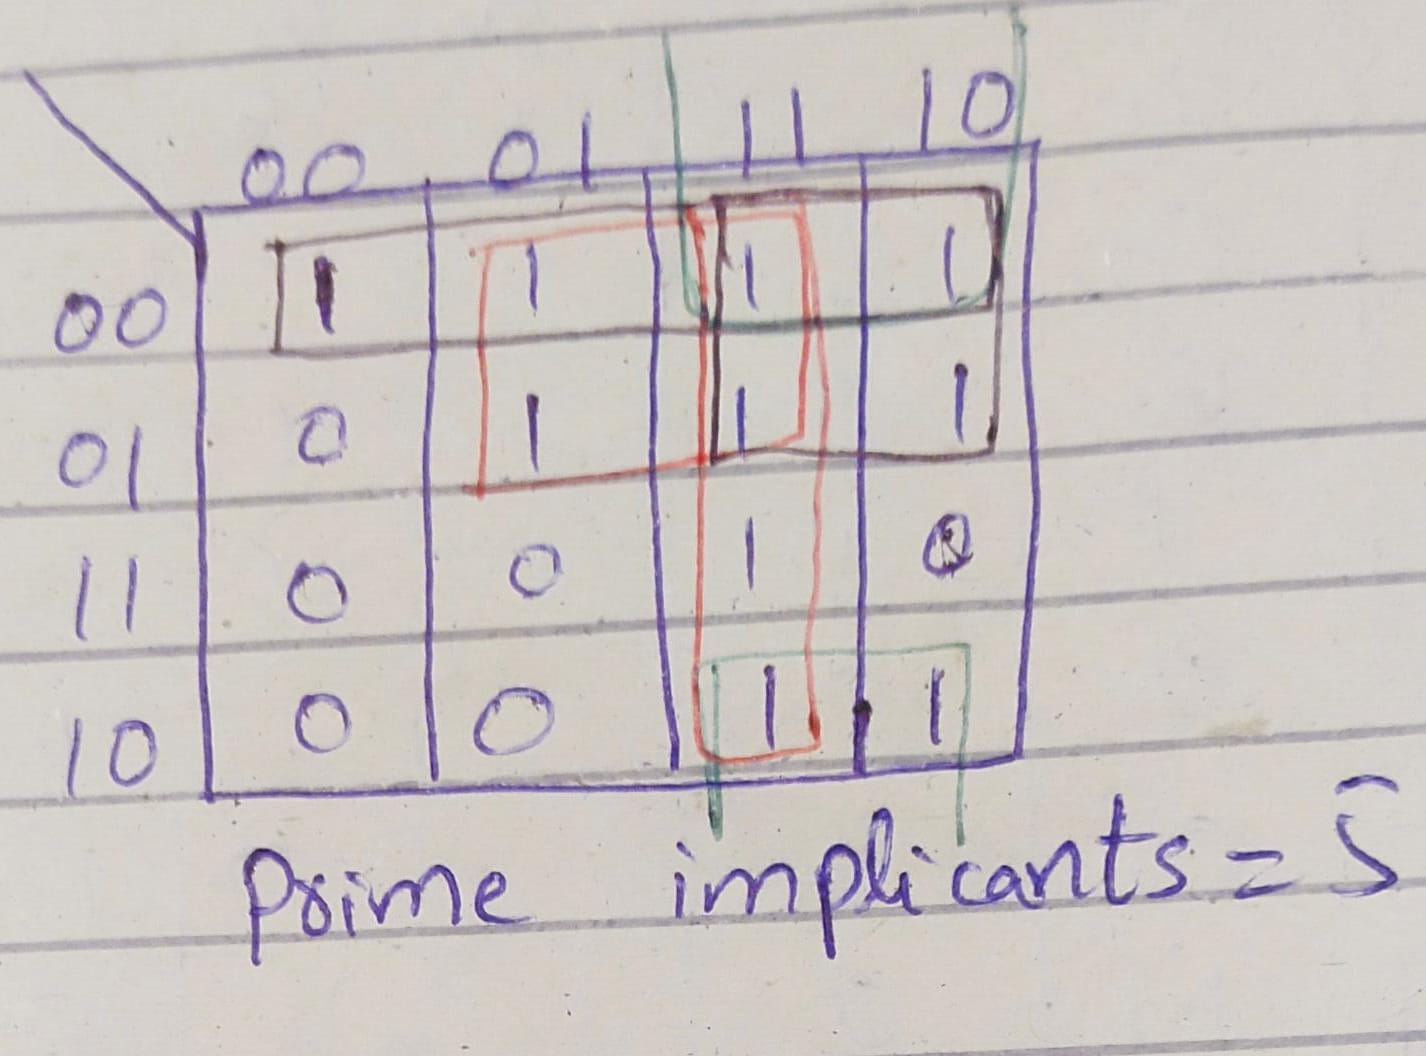 00 01 11 10
00 1 1 1 1
01 0 1 1 1
11 0 0 1 0
10 0 0 1 1
Prime implicants = 5